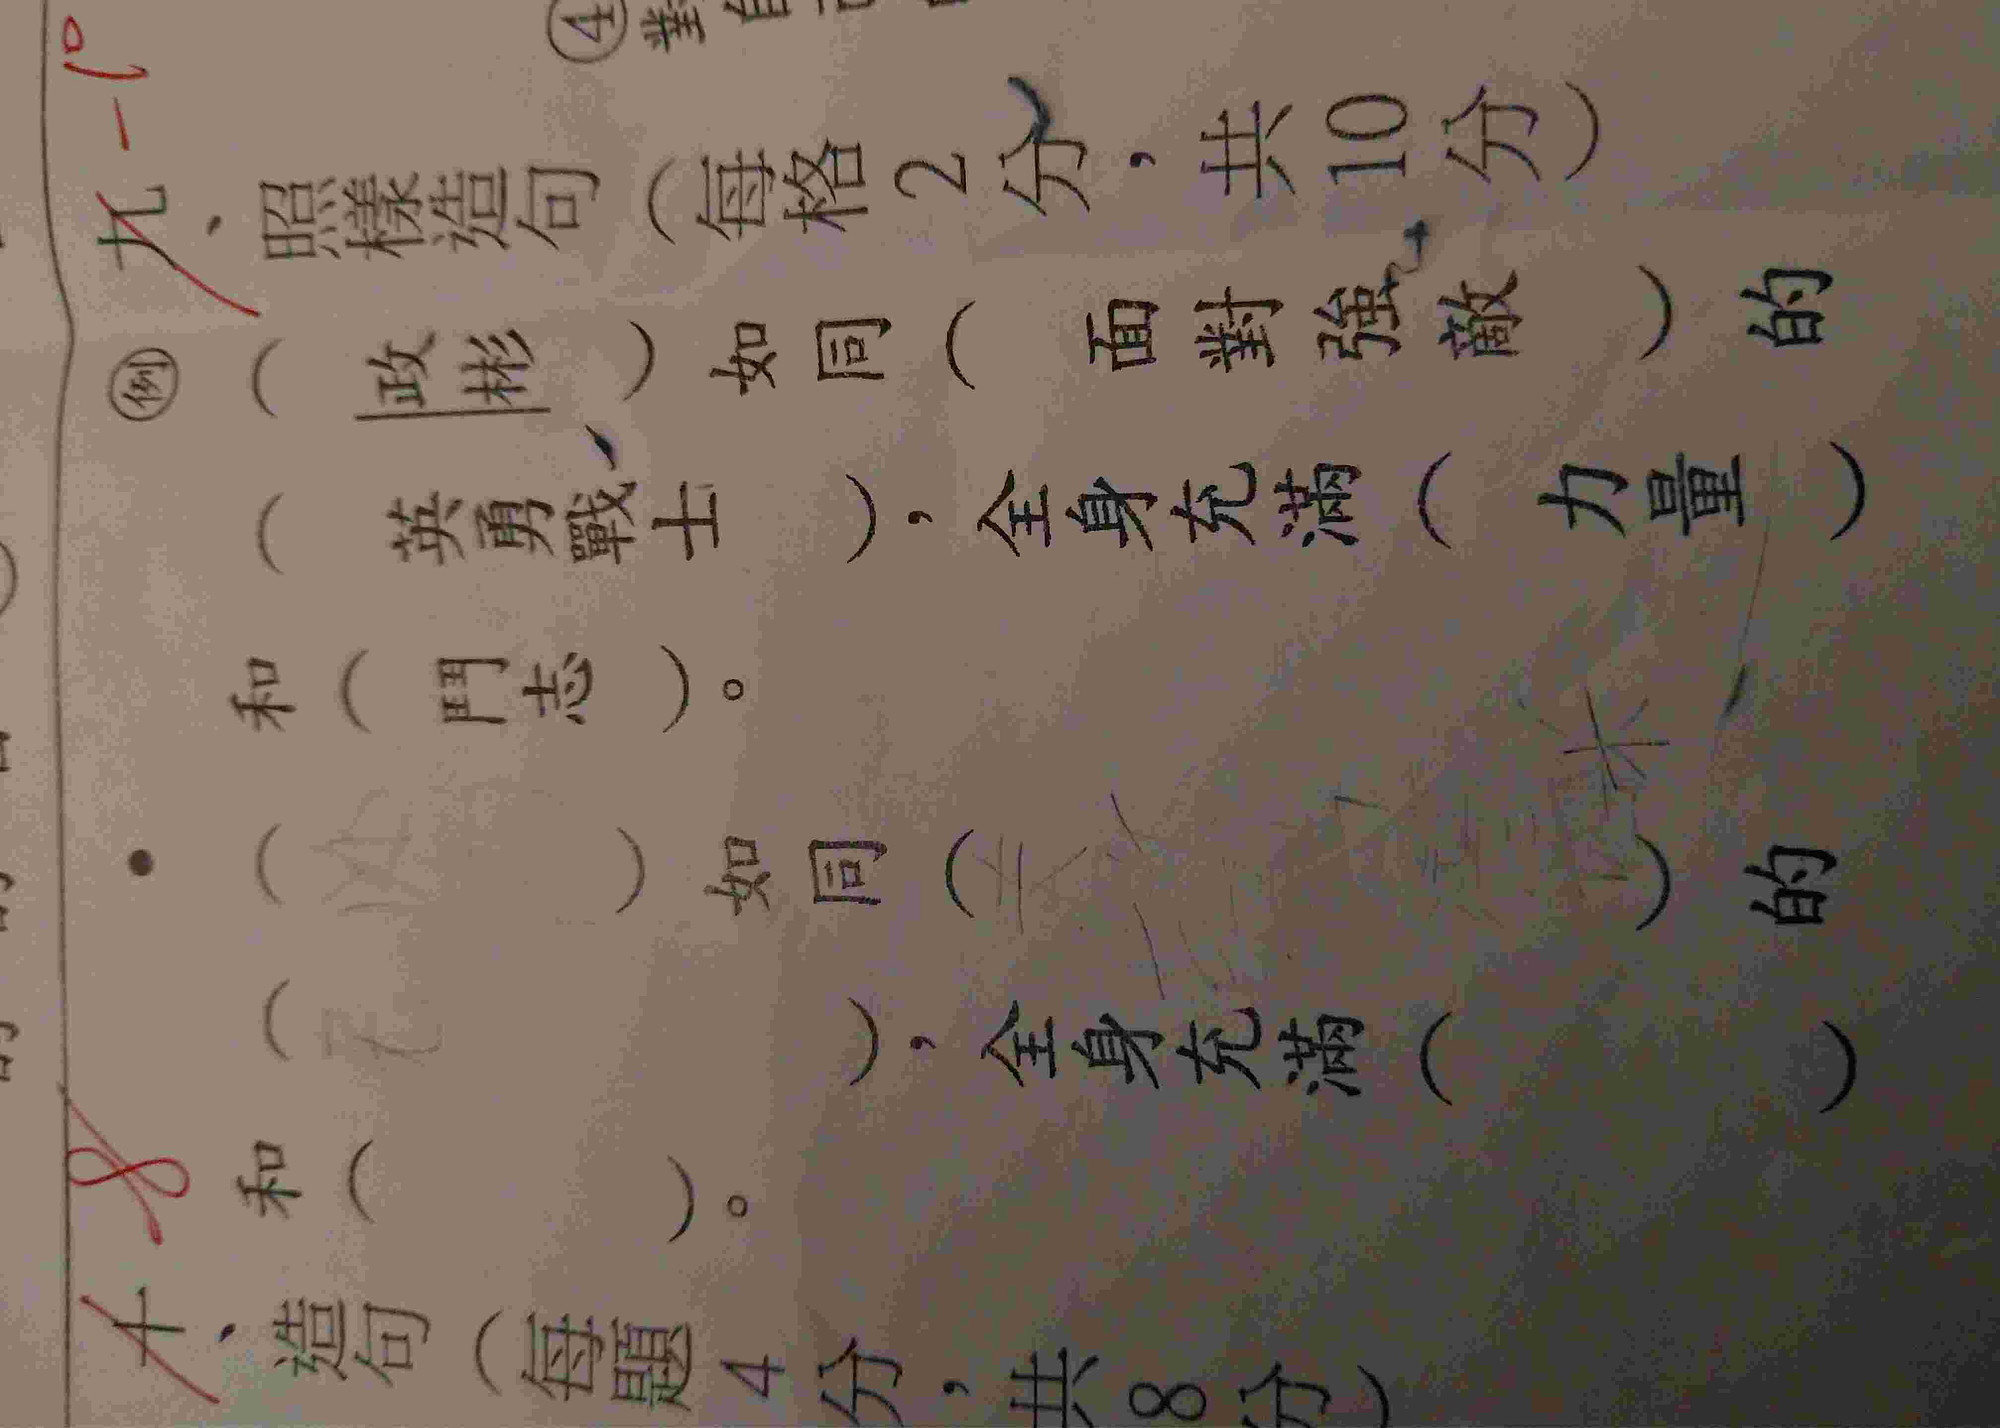 ④對自
九、照樣造句（每格2分，共10分） -10
例（政彬）如同（面對強敵）的
（英勇戰士），全身充滿（力量）
和（鬥志）。
•（　　）如同（　　）的
（　　），全身充滿（　　）
和（　　）。
-8
十、造句（每題4分，共8分）